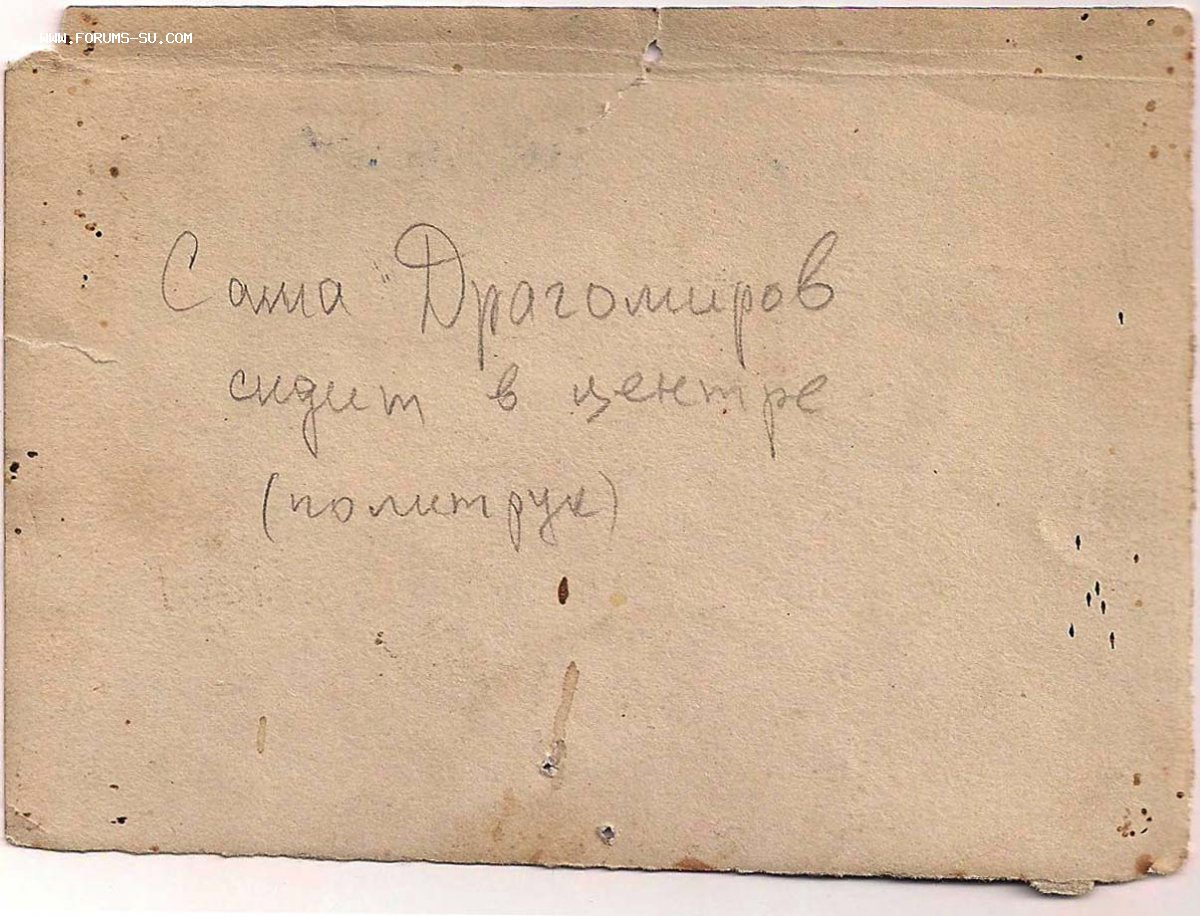 WWW.FORUMS-SU.COM
Саша Драгомиров
сидит в центре
(политрук)